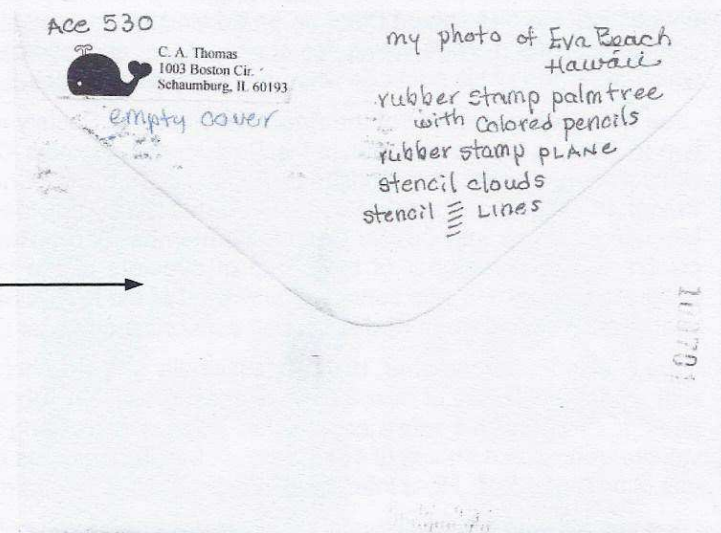 Ace 530
C. A. Thomas
1003 Boston Cir.
Schaumburg, IL 60193
empty cover
my photo of Eva Beach
Hawaii
rubber stamp palmtree
with colored pencils
rubber stamp PLANe
stencil clouds
stencil LINes